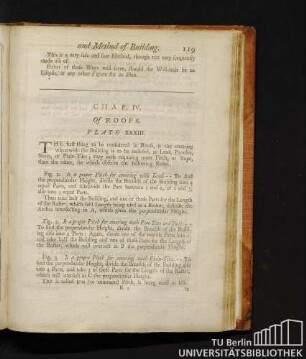 and Method of Building. 119
This is a very safe and sure Method, though not very frequently
made use of.
Either of these Ways will serve, should the be an
Ellipsis, or any other Figure
CHAP. IV.
Of ROOFS.
PLATE XXXIII.
THE first thing to be considered in Roofs, is the covering
wherewith the Building is to be covered, as Lead, Pantiles,
Slates, or Plain-Tiles; they each requiring more Pitch, or Slope,
than the other, for which observe the following Rules.
Fig. 1. Is a proper Pitch for covering with Lead. To find
the perpendicular Height, divide the Breadth of the Building into
equal Parts, and
also into 4 equal Parts.
Then take half the Building, and one of those Parts for the Length
of the Rafter, which said Length being used as a Radius, describe the
Arches intersecting in A, which gives the perpendicular Height.
Fig. 2. Is a proper Pitch for covering with Pan-Tiles
To find the perpendicular Height, divide the Breadth of the
into 4 Parts; Again, divide one of the Parts into
and take half the Building and one of those Parts for the Length of
the Rafter, which will intersect in B the perpendicular Height.
Fig. 3. Is a proper Pitch for covering with Plain-Tiles. To find
the perpendicular Height, divide the Breadth of the Building
into 4 Parts, and take 3 of those Parts for the Length of the Rafter,
which will intersect in C the perpendicular Height.
This is called true (or common) Pitch, it being used in
TU Berlin
UNIVERSITÄTSBIBLIOTHEK